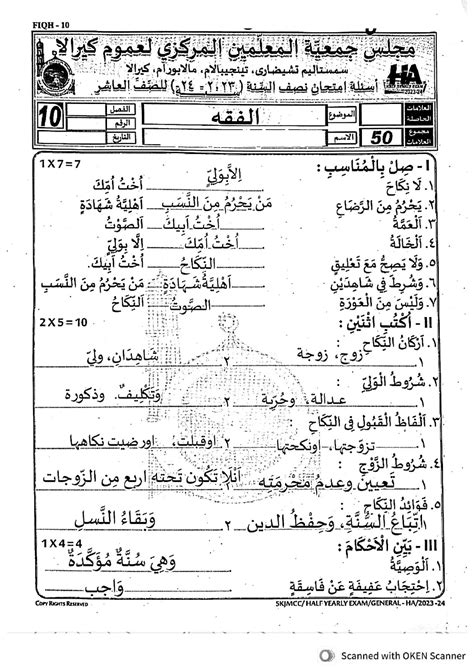 FIQH - 10
مجلس جمعيّة المعلّمين المركزي لعموم كيرالا
سمستاليم تشيضاري، تينجيبالام، مالابورام، كيرالا
أسئلة امتحان نصف السّنة (٢٠٢٣ - ٢٤م) للصّف العاشر
HA
HALF YEARLY EXAM
2023-24
10 الفصل الفقه الموضوع العلامات الحاصلة
الرقم
التاريخ الاسم 50 مجموع العلامات
1 X 7 = 7 I - صِلْ بِالْمُنَاسِبِ :
١. لَا نِكَاحَ إِلَّا بِوَلِيّ أُخْتُ اُمِّكَ
٢. يَحْرُمُ مِنَ الرَّضَاعِ مَنْ يَحْرُمُ مِنَ النَّسَبِ اَهْلِيَّةُ شَهَادَةٍ
٣. اَلْعَمَّةُ أُخْتُ اَبِيكَ اَلصَّوْتُ
٤. اَلْخَالَةُ أُخْتُ اُمِّكَ اِلَّا بِوَلِيّ
٥. وَلَا يَصِحُّ مَعَ تَعْلِيقٍ اَلنِّكَاحُ أُخْتُ اَبِيكَ.
٦. وَشُرِطَ فِي شَاهِدَيْنِ اَهْلِيَّةُ شَهَادَةٍ مَنْ يَحْرُمُ مِنَ النَّسَبِ
٧. وَلَيْسَ مِنَ الْعَوْرَةِ الصَّوْتُ اَلنِّكَاحُ
2 X 5 = 10 II - اُكْتُبِ اثْنَيْنِ :
١. اَرْكَانُ النِّكَاحِ :
١ زوج، زوجة ٢ شاهدَان، وليّ
٢. شُرُوطُ الْوَلِيِّ :
١ عدالة، وحُرية ٢ وتكليفٌ. وذكورة
٣. اَلْفَاظُ الْقَبُولِ فِى النِّكَاحِ :
١ تزوّجتها، اونكحتها ٢ اوقبلت، اورضيت نكاحها
٤. شُرُوطُ الزَّوْجِ :
١ تعيين وعدمُ مَحْرمَته ٢ اَنْلَا تَكُون تَحته اربع مِن الزوجات
٥. فَوَائِدُ النِّكَاحِ :
١ اتِّبَاعُ السُّنَّةِ، وَحِفْظُ الدين ٢ وَبَقَاءُ النَّسل
1 X 4 = 4 III - بَيِّنِ الْاَحْكَامَ :
١. اَلْوَصِيَّةُ وَهِيَ سُنَّةٌ مُؤَكَّدَةٌ
٢. اِحْتِجَابُ عَفِيفَةٍ عَنْ فَاسِقَةٍ وَاجب
COPY RIGHTS RESERVED SKJMCC/ HALF YEARLY EXAM/GENERAL - HA/2023 -24
Scanned with OKEN Scanner